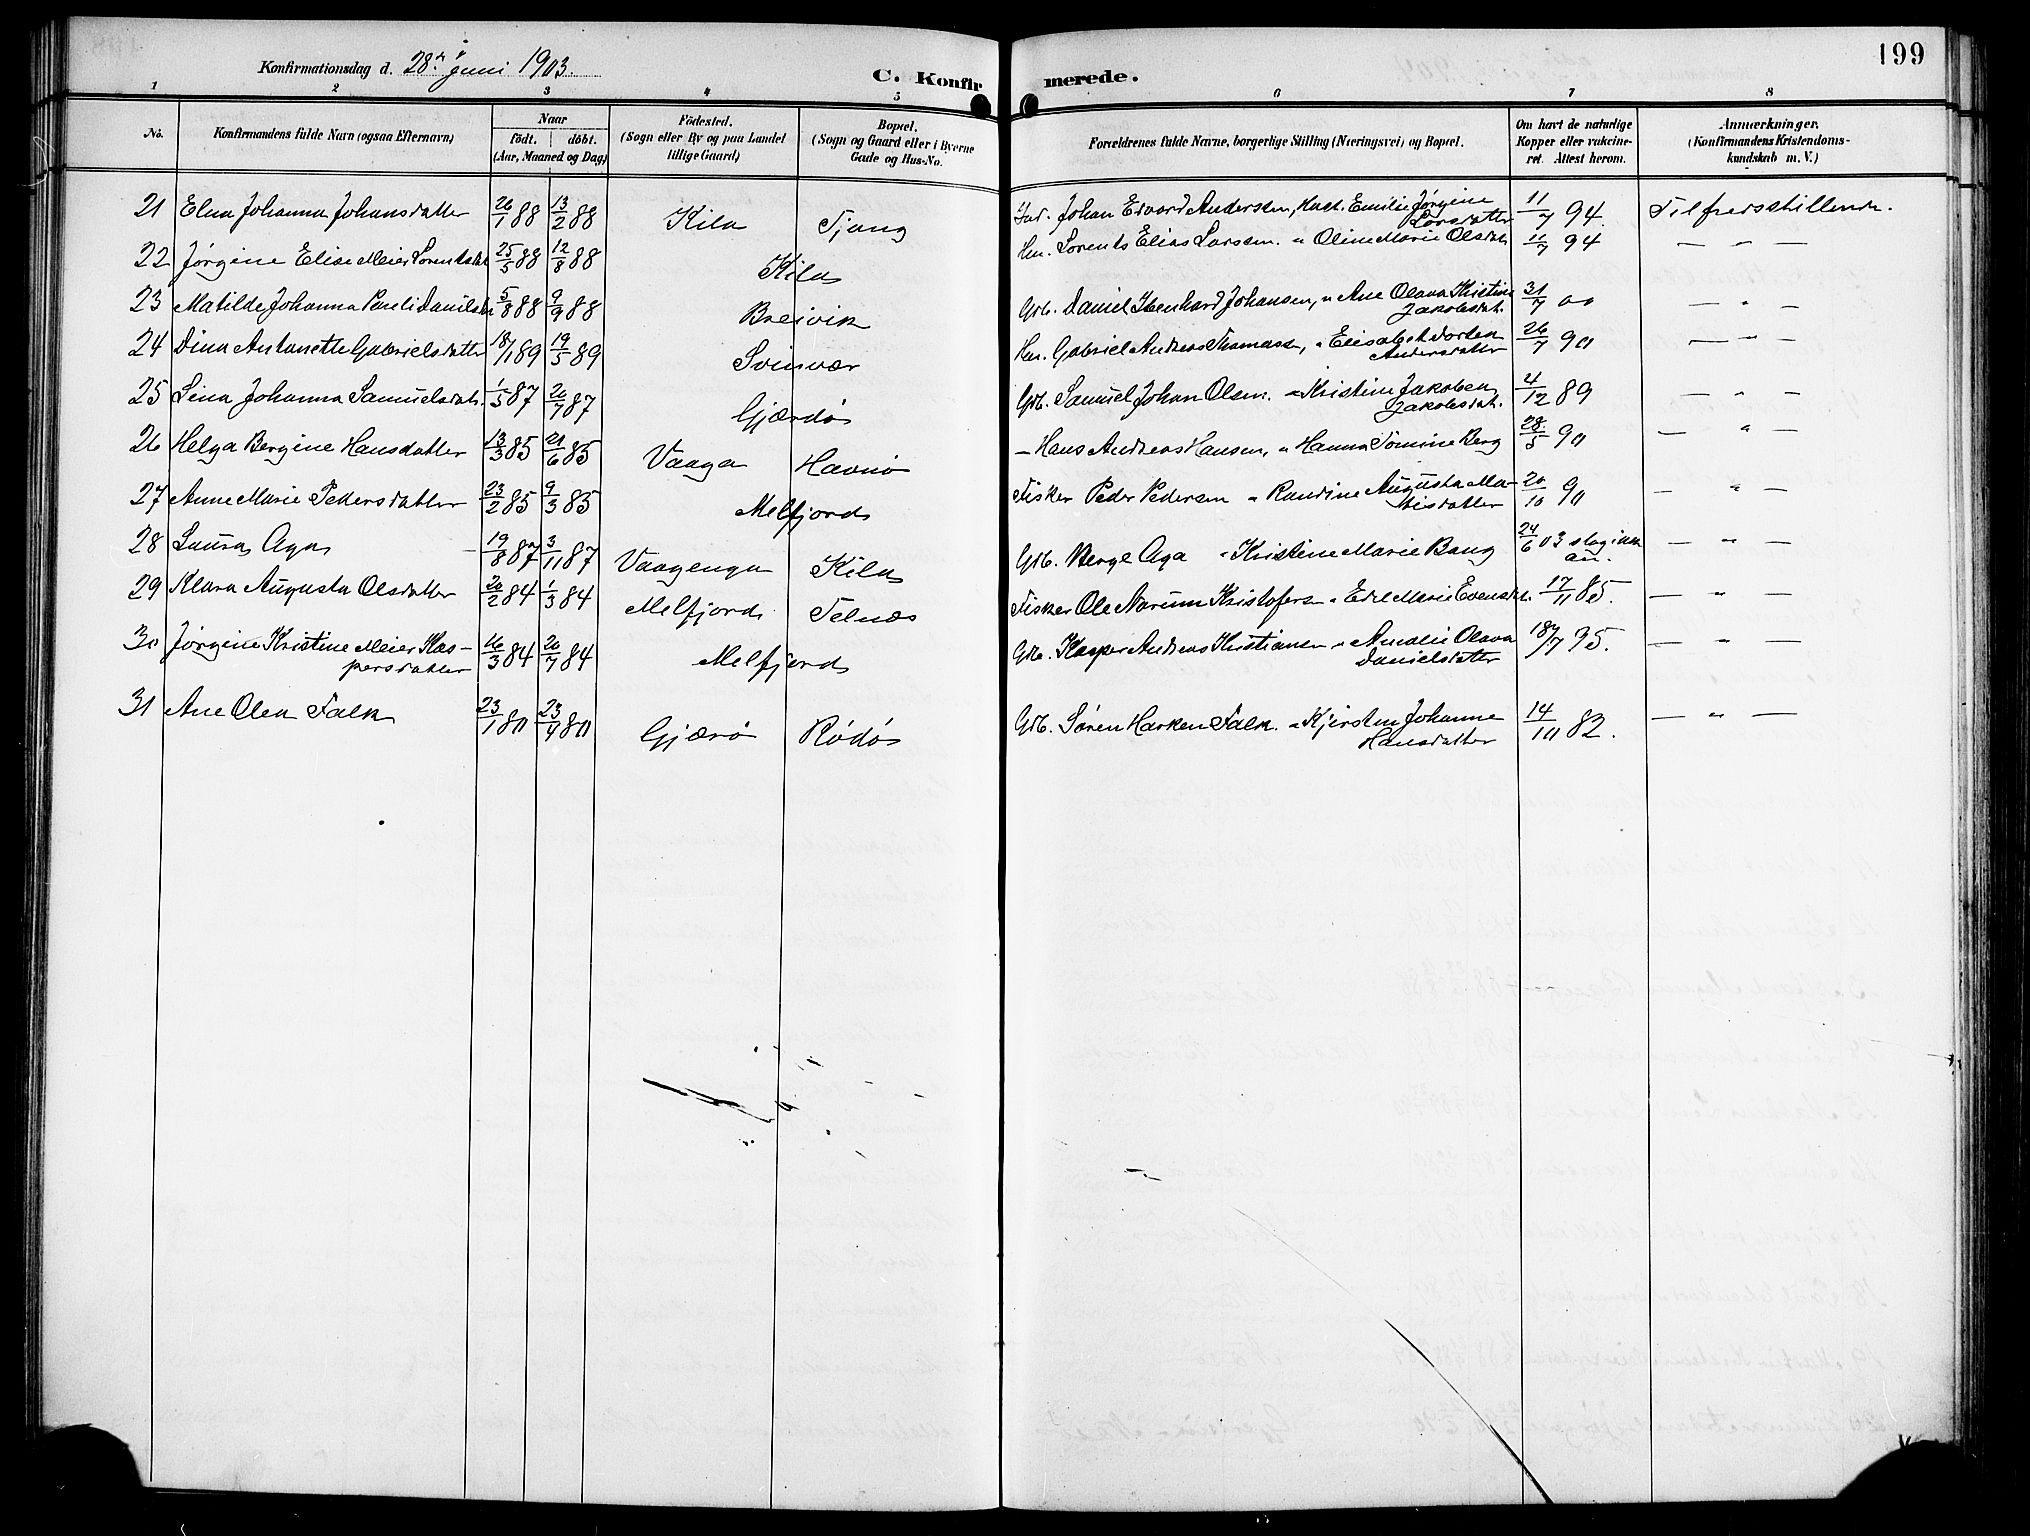 199
Konfirmationsdag d. 28de Juni 1903.
C. Konfirmerede.
1 2 3 4 5 6 7 8
No.
Konfirmandens fulde Navn (ogsaa Efternavn)
Naar
födt. döbt.
(Aar, Maaned og Dag)
Födested.
(Sogn eller By og paa Landet tillige Gaard)
Bopæl.
(Sogn og Gaard eller i Byerne Gade og Hus-No.
Forældrenes fulde Navne, borgerlige Stilling (Næringsvei) og Bopæl.
Om havt de naturlige Kopper eller vakcineret. Attest herom.
Anmærkninger.
(Konfirmandens Kristendomskundskab m. V.)
21 Elna Johanna Johansdatter 26/1 88 13/2 88 Kila Tjong Ind. Johan Edvard Andersen, Hust. Emilie Jørgine Larsdatter 11/7 94. Tilfredsstillende.
22 Jørgine Elise Meier Lorentsdat 25/5 88 12/8 88 Kila Hm. Lorents Elias Larssen. " Oline Marie Olsdat. 11/7 94 — " —
23 Matilde Johanna Pauli Danilsdat 5/8 88 9/9 88 Breivik Grb. Daniel Ibenhard Johansen, " Ane Olava Kristine Jakobsdat. 31/7 00 — " —
24 Dina Antonette Gabrielsdatter 18/1 89 19/5 89 Svinvær Hm. Gabriel Andreas Thomassen, " Elisabet Dortea Andersdatter 26/7 90 — " —
25 Lina Johanna Samuelsdat. 1/5 87 20/7 87 Gjærdö Grb. Samuel Johan Olsen. " Kristine Jakobea Jakobsdat. 4/12 89 — " —
26 Helga Bergine Hansdatter 13/3 85 21/6 85 Vaaga Havnö — Hans Andreas Hansen, " Hanna Tomine Berg 28/5 90 — " —
27 Anne Marie Pedersdatter 23/2 85 9/3 85 Melfjord Fisker Peder Pedersen " Randine Augusta Matisdatter 20/10 90 — " —
28 Laura Aga 19/8 87 3/11 87 Vaagenga Kila Grb. Berge Aga " Kristine Marie Bang 24/6 03 slog ikke an. — " —
29 Klara Augusta Olsdatter 20/2 84 1/3 84 Melfjord Telnes Fisker Ole Norum Kristofers. " Edel Marie Evensdat. 17/11 85. — " —
30 Jørgine Kristine Meier Kaspersdatter 16/3 84 20/7 84 Melfjord Grb. Kasper Andreas Kristiansen " Amalie Olava Danielsdatter 18/7 95. — " —
31 Ane Olea Falk 23/1 80 23/9 80 Gjærö Rödö Grb. Søren Harken Falk. " Kjersten Johanne Hansdatter 14/10 82. — " —